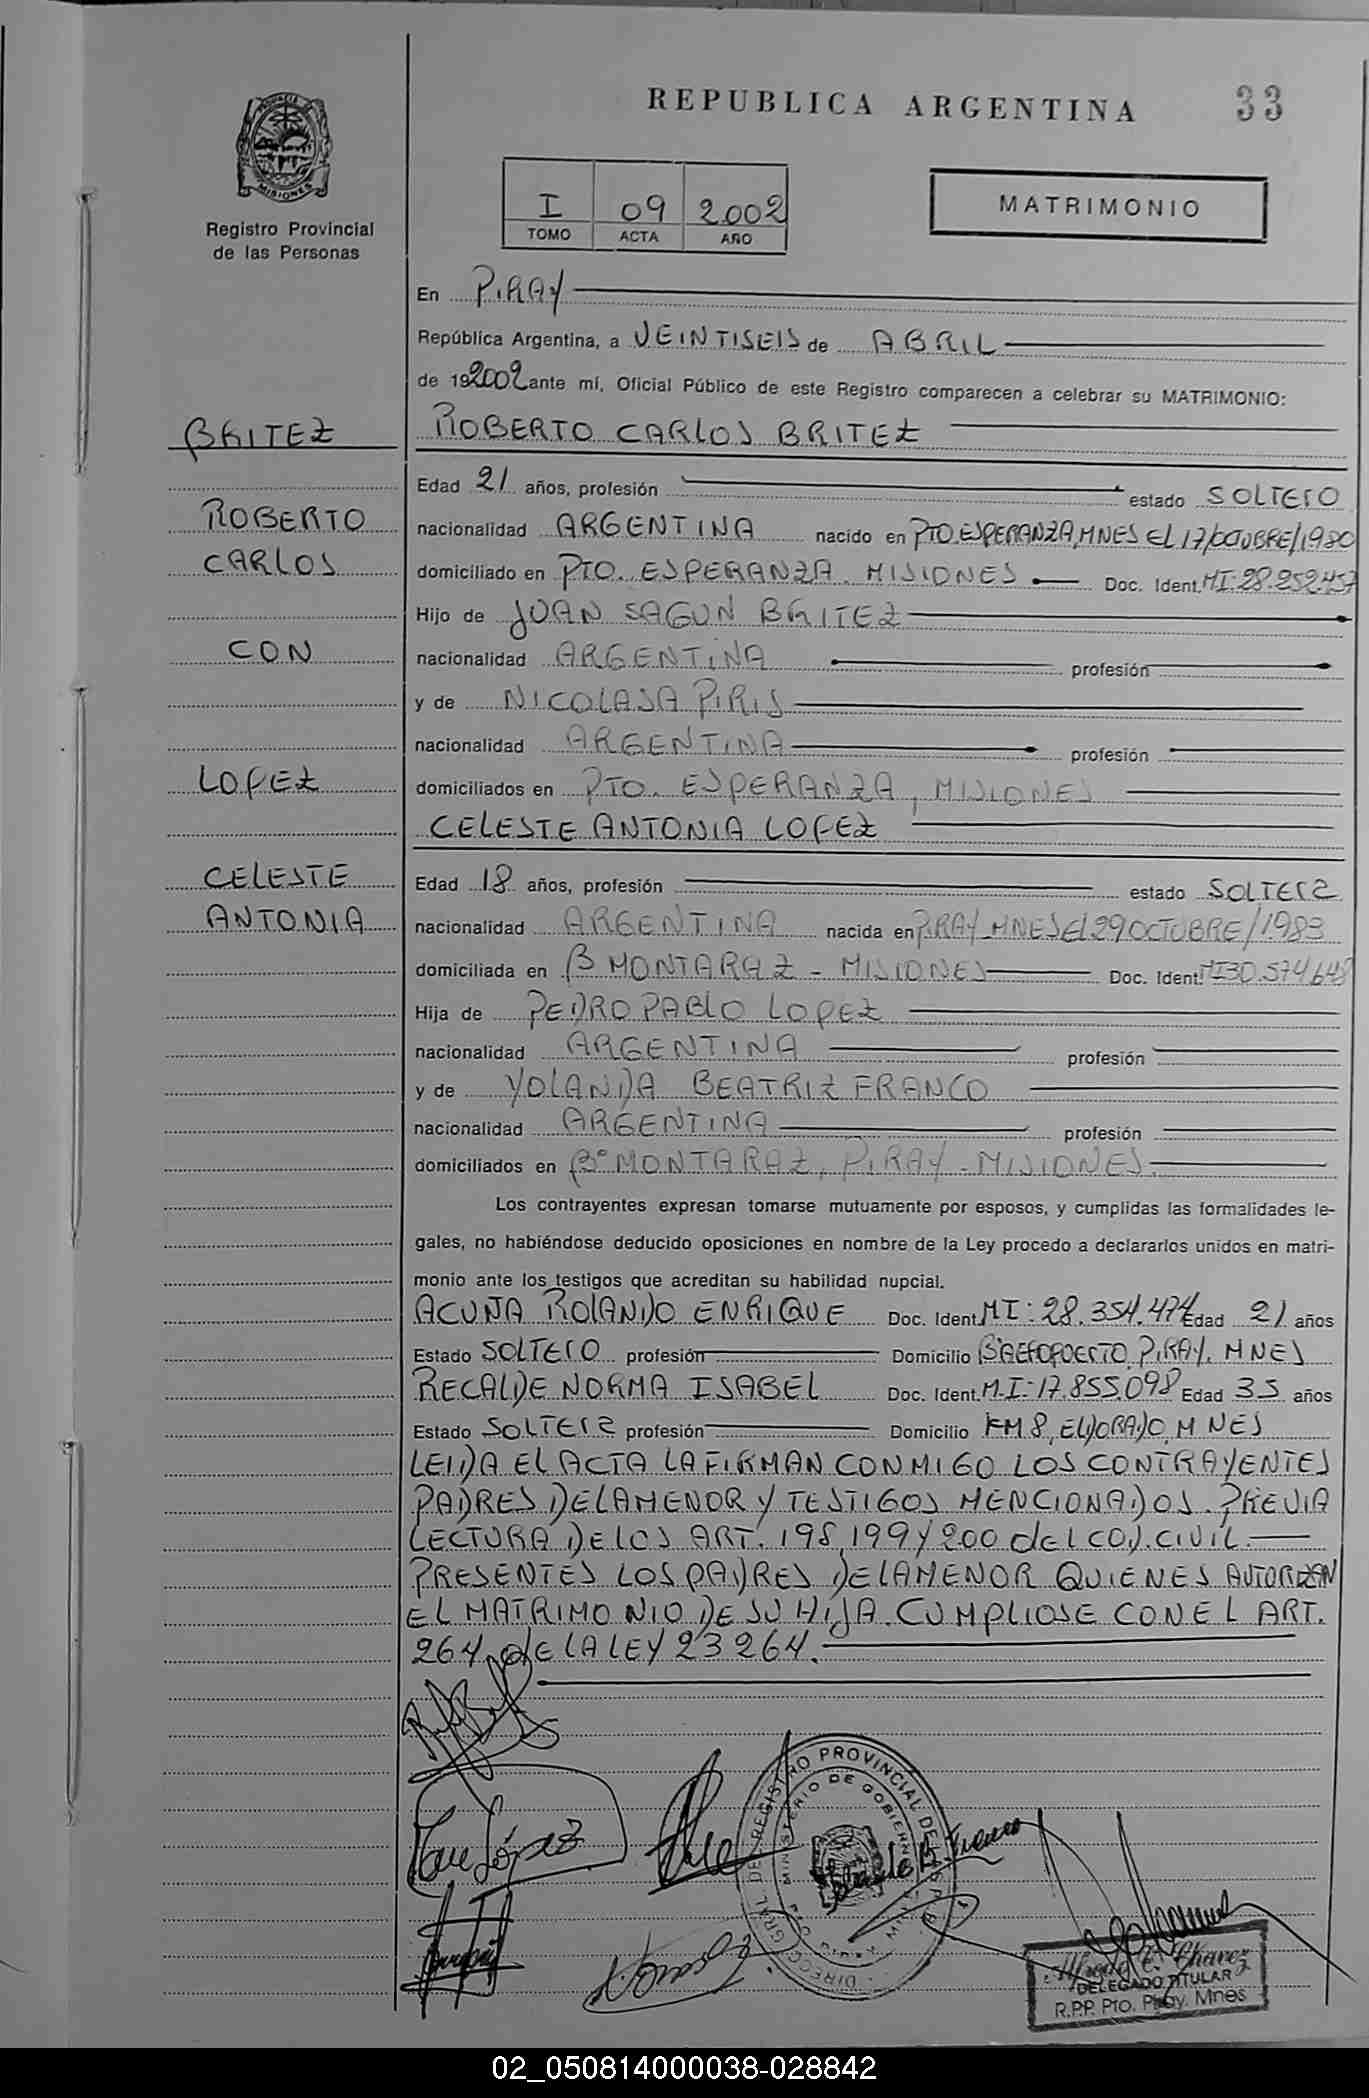 REPUBLICA ARGENTINA 33
PROVINCIA DE MISIONES
Registro Provincial
de las Personas
I 09 2002
TOMO ACTA AÑO
MATRIMONIO
En PIRAY
República Argentina, a VEINTISEIS de ABRIL
de 192002 ante mí, Oficial Público de este Registro comparecen a celebrar su MATRIMONIO:
BRITEZ ROBERTO CARLOS BRITEZ
Edad 21 años, profesión estado SOLTERO
ROBERTO nacionalidad ARGENTINA nacido en PTO. ESPERANZA, MNES EL 17/OCTUBRE/1980
CARLOS domiciliado en PTO. ESPERANZA. MISIONES Doc. Ident. MI: 28.252.457
Hijo de JUAN SAGUN BRITEZ
CON nacionalidad ARGENTINA profesión
y de NICOLASA PIRIS
nacionalidad ARGENTINA profesión
LOPEZ domiciliados en PTO. ESPERANZA, MISIONES
CELESTE ANTONIA LOPEZ
CELESTE Edad 18 años, profesión estado SOLTERA
ANTONIA nacionalidad ARGENTINA nacida en PIRAY MNES El 29 OCTUBRE/1983
domiciliada en B MONTARAZ - MISIONES Doc. Ident. MI 30.574.648
Hija de PEDRO PABLO LOPEZ
nacionalidad ARGENTINA profesión
y de YOLANDA BEATRIZ FRANCO
nacionalidad ARGENTINA profesión
domiciliados en B° MONTARAZ, PIRAY - MISIONES.
Los contrayentes expresan tomarse mutuamente por esposos, y cumplidas las formalidades le-
gales, no habiéndose deducido oposiciones en nombre de la Ley procedo a declararlos unidos en matri-
monio ante los testigos que acreditan su habilidad nupcial.
ACUÑA ROLANDO ENRIQUE Doc. Ident. MI: 28.354.474 Edad 21 años
Estado SOLTERO profesión Domicilio B° AEROPUERTO. PIRAY. MNES
RECALDE NORMA ISABEL Doc. Ident. M.I: 17.855.098 Edad 35 años
Estado SOLTERA profesión Domicilio KM 8, ELDORADO, MNES
LEIDA EL ACTA LA FIRMAN CONMIGO LOS CONTRAYENTES
PADRES DE LA MENOR Y TESTIGOS MENCIONADOS. PREVIA
LECTURA DE LOS ART. 198, 199 Y 200 del COD. CIVIL.
PRESENTES LOS PADRES DE LA MENOR QUIENES AUTORIZAN
EL MATRIMONIO DE SU HIJA. CUMPLIOSE CON EL ART.
264 de LA LEY 23264.
López
Franco
Alfredo C. Chavez
DELEGADO TITULAR
R.P.P. Pto. Piray. Mnes
02_050814000038-028842